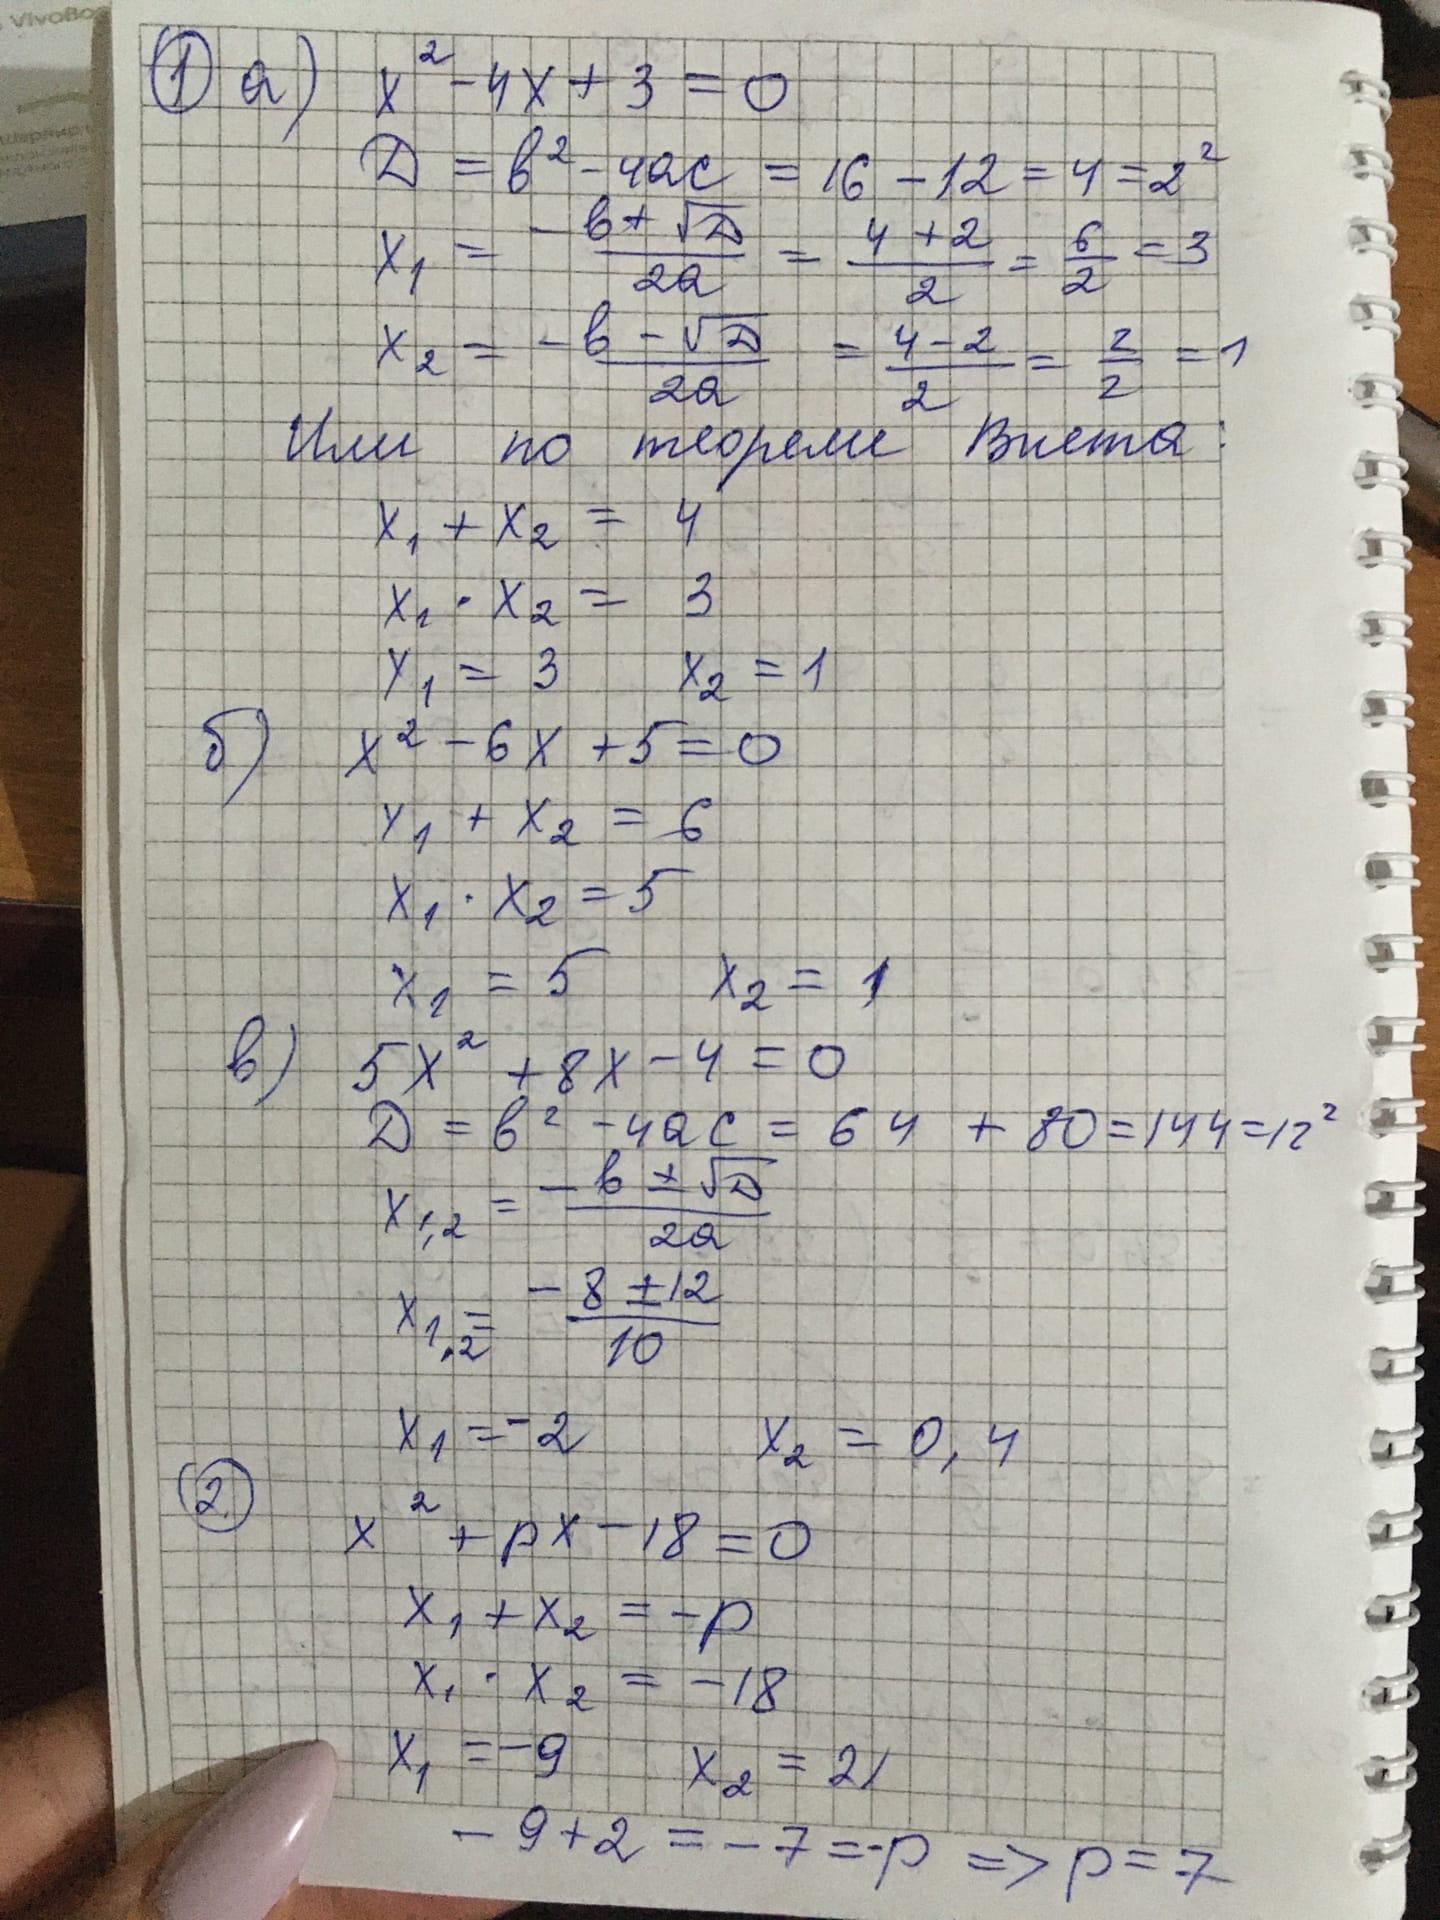 VivoBo
① а) x² - 4x + 3 = 0
D = b² - 4ac = 16 - 12 = 4 = 2²
x₁ = (-b + √D)/2a = (4 + 2)/2 = 6/2 = 3
x₂ = (-b - √D)/2a = (4 - 2)/2 = 2/2 = 1
Или по теореме Виета:
x₁ + x₂ = 4
x₁ · x₂ = 3
x₁ = 3 x₂ = 1
б) x² - 6x + 5 = 0
x₁ + x₂ = 6
x₁ · x₂ = 5
x₁ = 5 x₂ = 1
в) 5x² + 8x - 4 = 0
D = b² - 4ac = 64 + 80 = 144 = 12²
x₁,₂ = (-b ± √D)/2a
x₁,₂ = (-8 ± 12)/10
x₁ = -2 x₂ = 0,4
② x² + px - 18 = 0
x₁ + x₂ = -p
x₁ · x₂ = -18
x₁ = -9 x₂ = 2
-9 + 2 = -7 = -p => p = 7